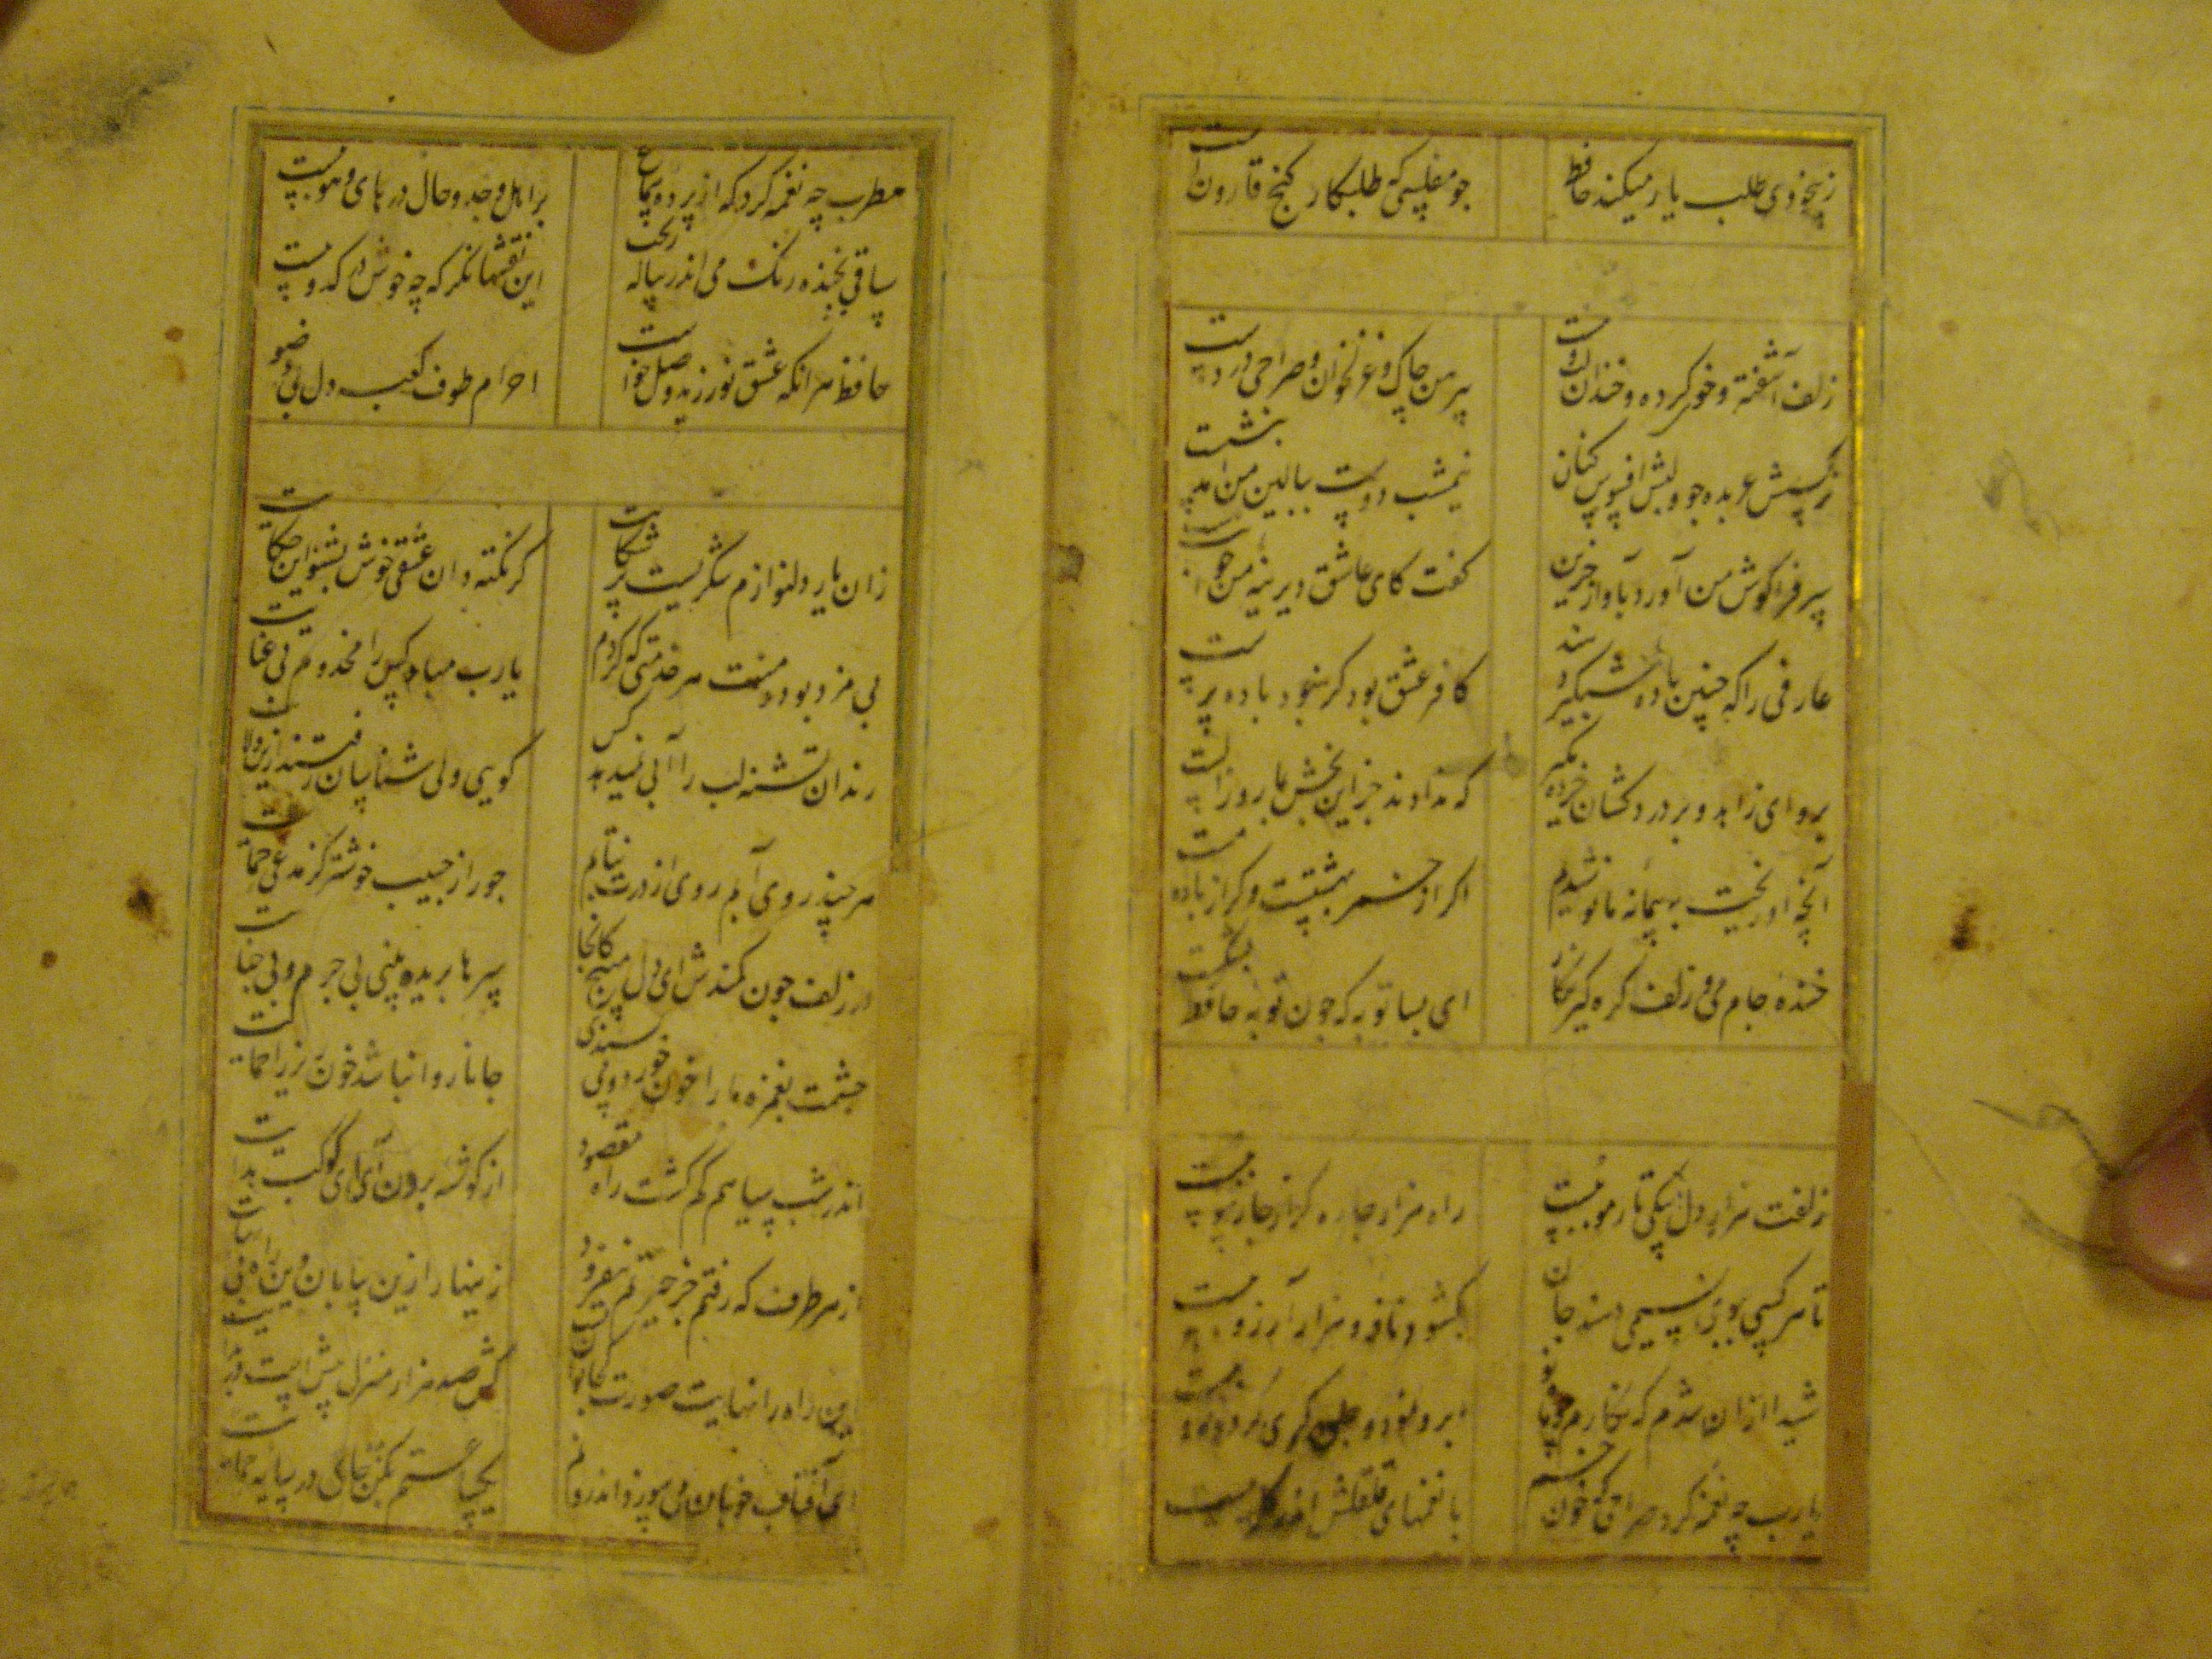 ز بیخودی طلب یار میکند حافظ جو مفلسی که طلبکار کنج قارونست
زلف آشفته و خوی کرده و خندان لب و مست پیرهن چاک و غزلخوان و صراحی در دست
نرکسش عربده جو و لبش افسوس کنان نیمشب دوست ببالین من آمد بنشست
سر فرا کوش من آورد بآواز حزین کفت کای عاشق دیرینه من
عارفی را که چنین باده شبکیر دهند کافر عشق بود کر نبود باده پرست
برو ای زاهد و بر دردکشان خرده مکیر که ندادند جز این بخش بما روز الست
آنچه او ریخت به پیمانه ما نوشیدیم اکر از خمر بهشتست و کر از باده مست
خنده جام می و زلف کره کیر نکار ای بسا توبه که جون توبه حافظ بشکست
زلفت هزار دل بیکی تار مو ببست راه هزار جاره کر از جار سو ببست
تا هر کسی ببوی نسیمی دهند جان بکشود نافه و هزار آرزو ببست
شیدا ازان شدم که نکارم جو ماه نو ابرو نمود و جلوه کری کرد و رو ببست
یارب چه نغمه کرد صراحی که خون خم با نغمهای قلقلش اندر کلو ببست
مطرب چه نغمه کرد که از پرده سماع بر اهل وجد و حال در های و هو ببست
ساقی بچند رنک می اندر پیاله ریخت این نقشها نکر که چه خوش در کدو ببست
حافظ هر انکه عشق نورزید و وصل خواست احرام طوف کعبه دل بی وضو ببست
زان یار دلنوازم شکریست پر شکایت کر نکته دان عشقی خوش بشنو این حکایت
بی مزد بود و منت هر خدمتی که کردم یارب مباد کس را مخدوم بی عنایت
رندان تشنه لب را آبی نمیدهد کس کویی ولی شناسان رفتند ازین ولایت
هر چند روی آبم روی از درت نتابم جور از حبیب خوشتر کز مدعی حمایت
در زلف جون کمندش ای دل مپیچ کانجا سرها بریده بینی بی جرم و بی جنایت
جشمت بغمزه ما را خون خورد و می پسندی جانا روا نباشد خون ریز را حمایت
اندر شب سیاهم کم کشت راه مقصود از کوشه برون آی ای کوکب هدایت
از هر طرف که رفتم جز حیرتم نیفزود زینهار ازین بیابان وین راه بی نهایت
این راه را نهایت صورت کجا توان بست کش صد هزار منزل بیش است در بدایت
ای آفتاب خوبان می سوزد اندرونم یکساعتم بکنجان در سایه حمایت